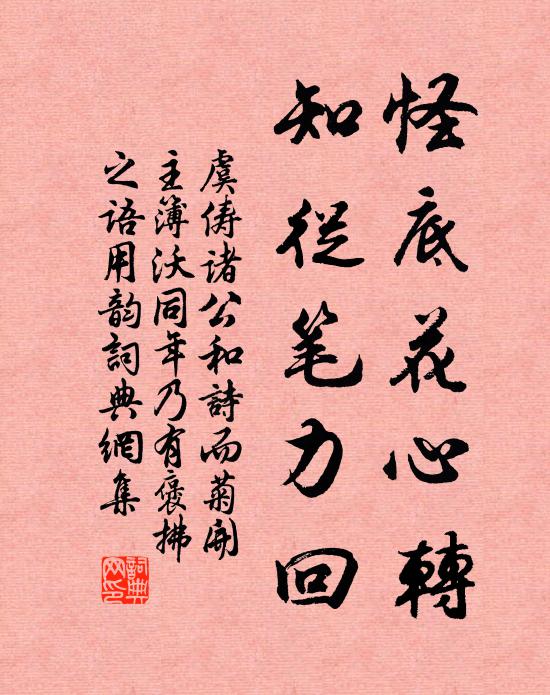 怪底花心轉
知從笔力回
虞俦诸公和詩而菊開
主簿沃同年乃有褒拂
之语用韵詞典網集
詞典网印